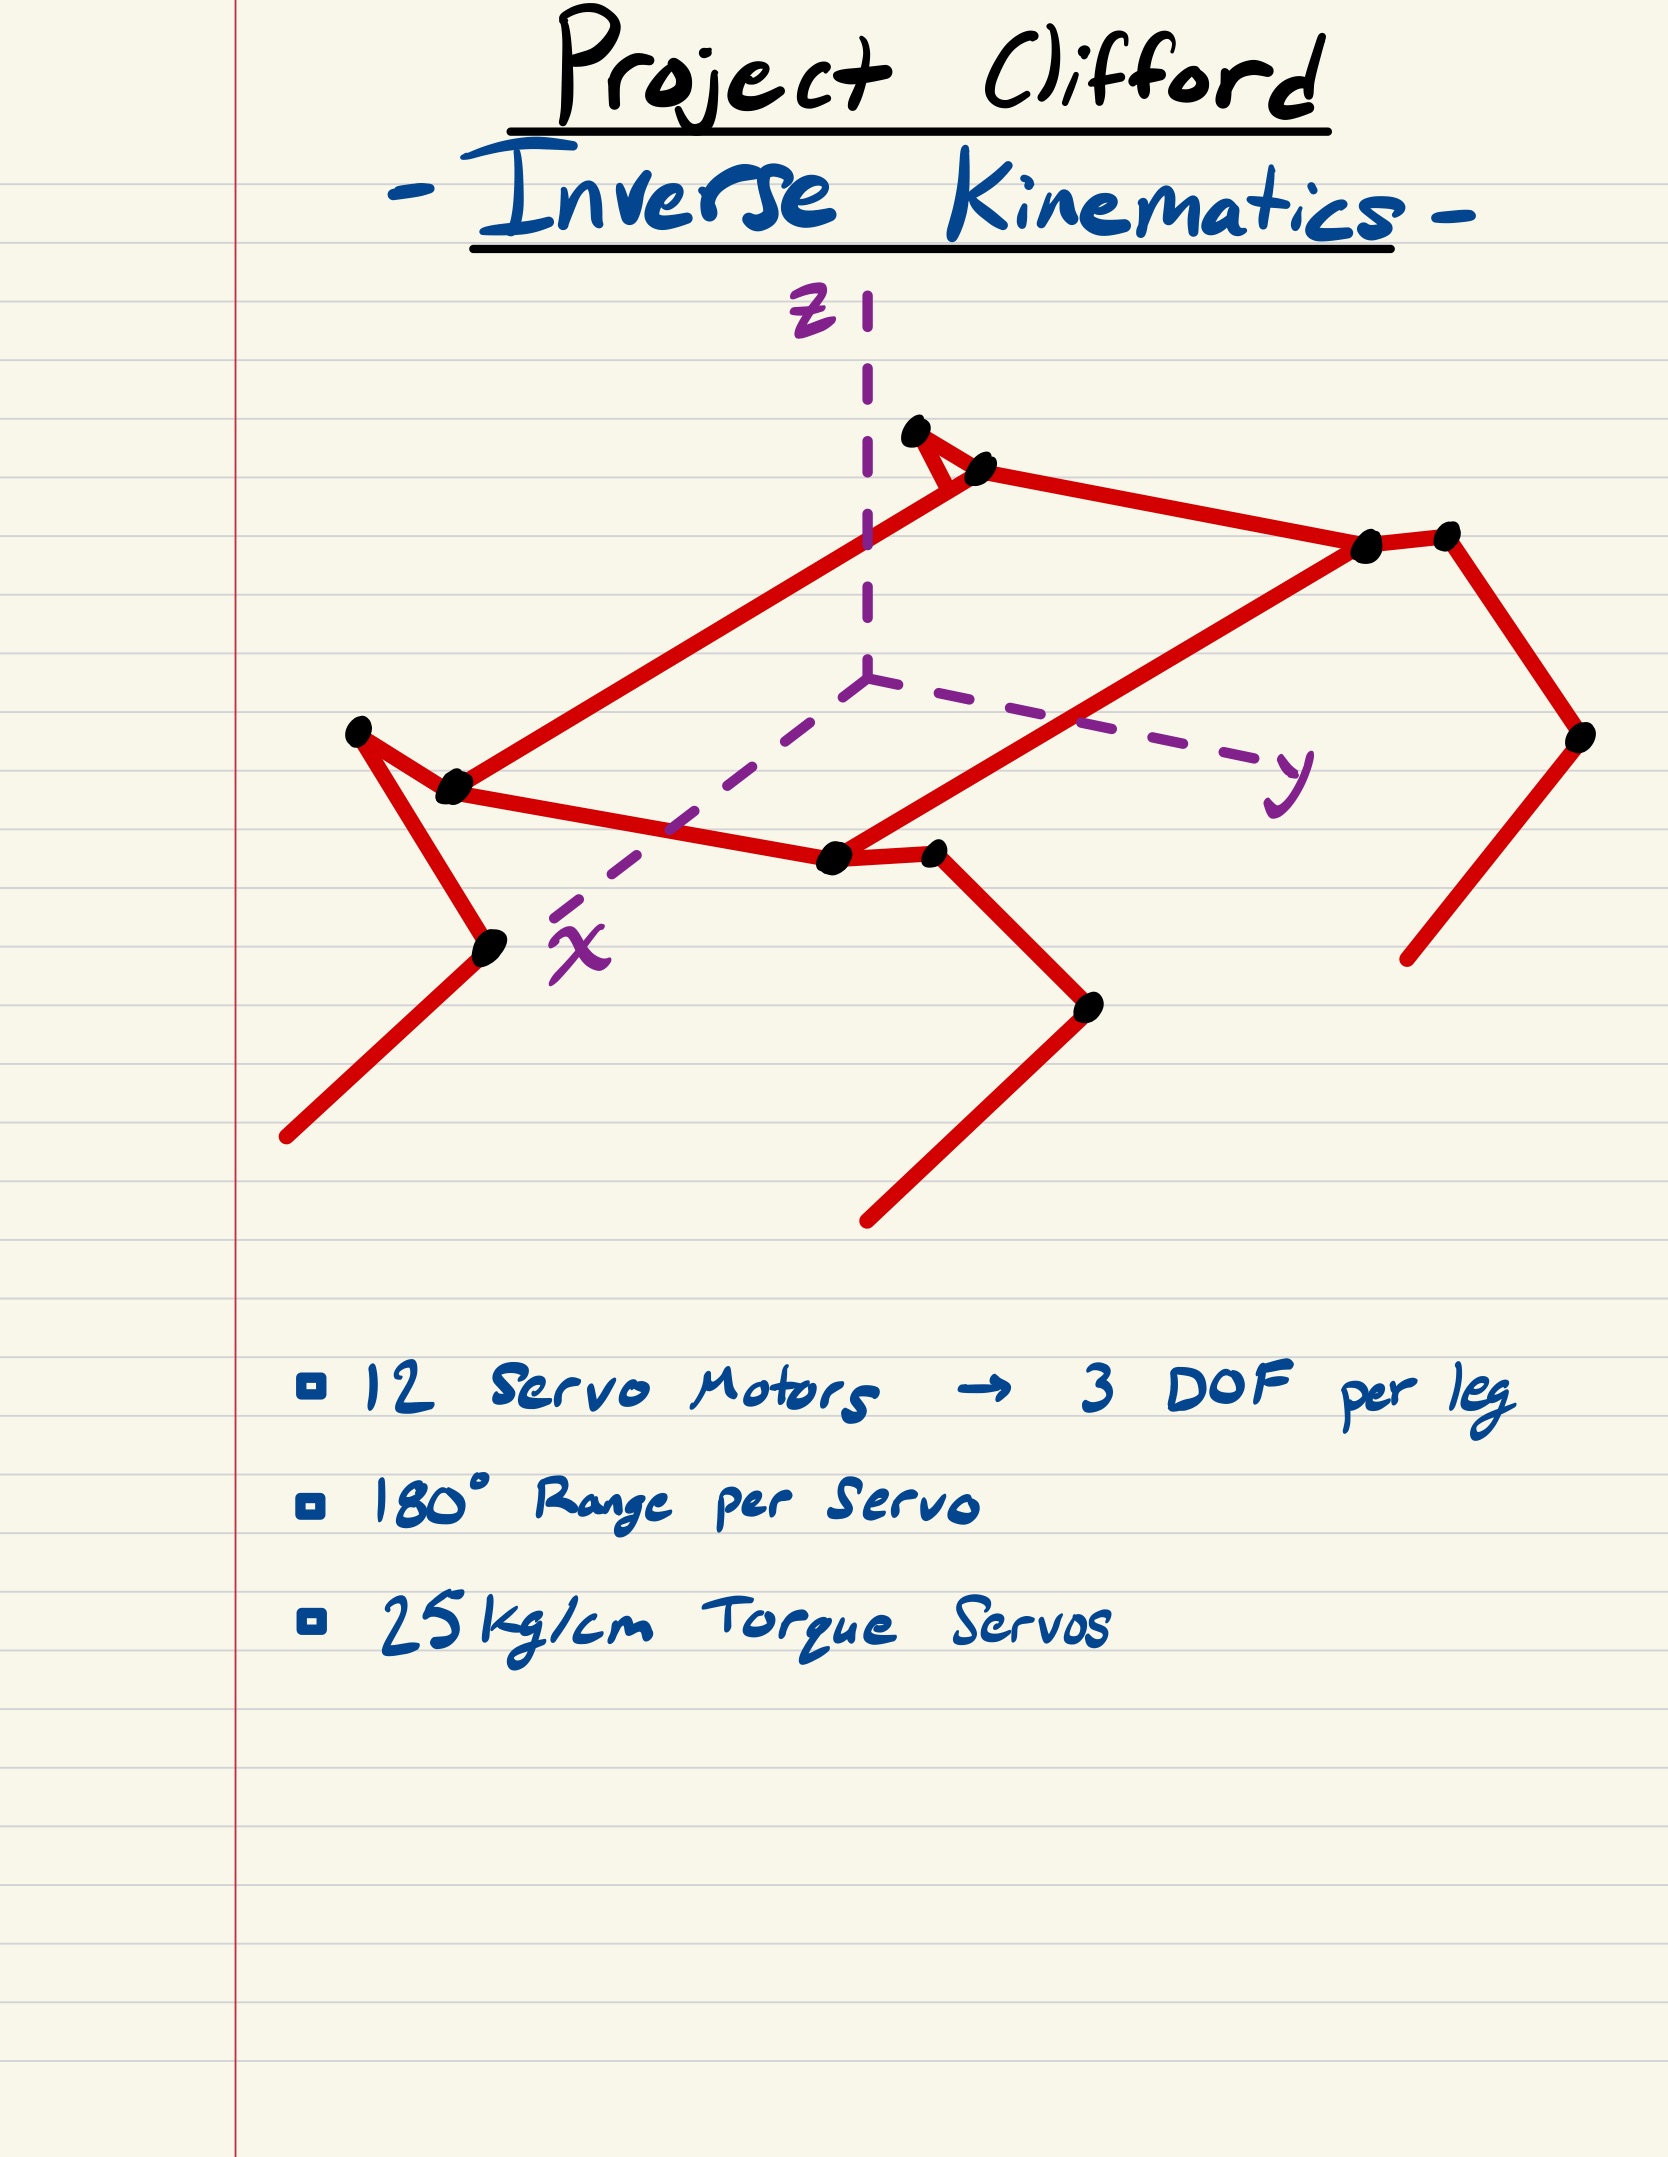 Project Clifford
- Inverse Kinematics -
z
y
x
12 Servo Motors → 3 DOF per leg
180° Range per Servo
25kg/cm Torque Servos